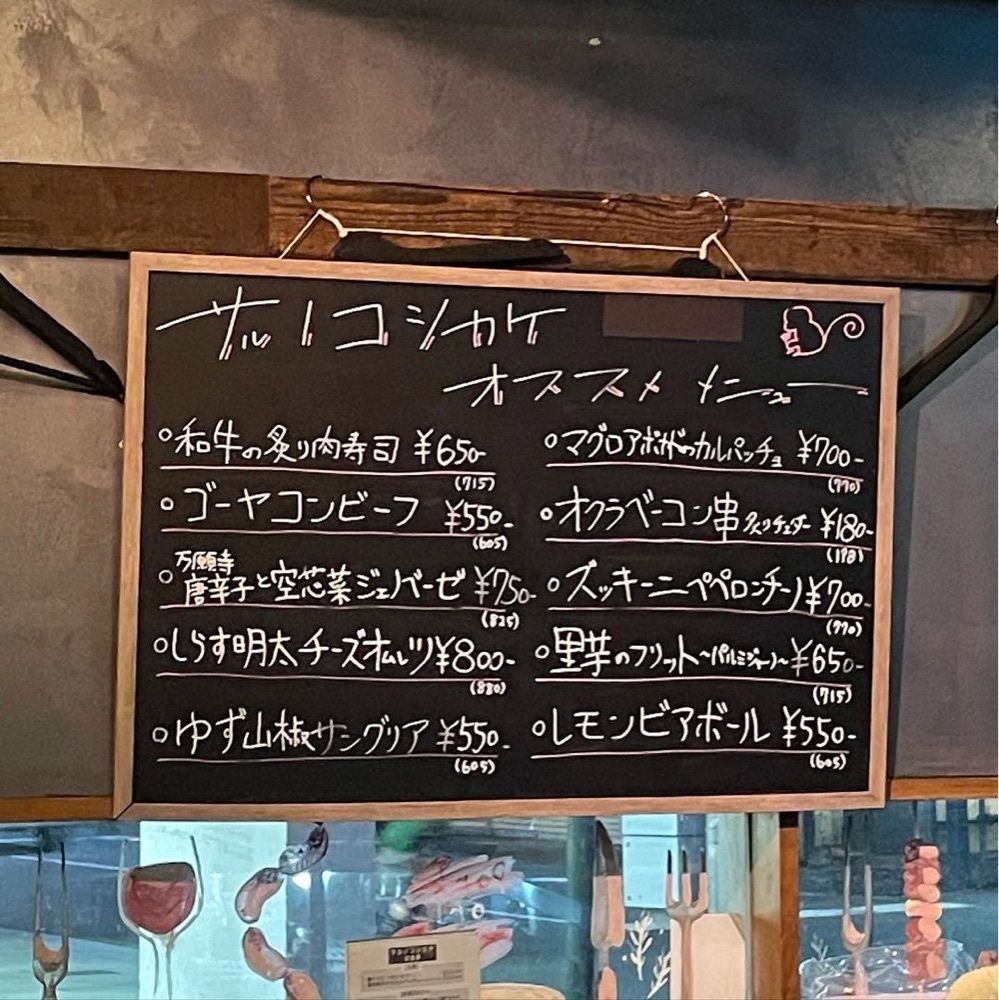 サルノコシカケ
オススメメニュー
○和牛の炙り肉寿司 ¥650-
(715)
○ゴーヤコンビーフ ¥550-
(605)
○万願寺
唐辛子と空芯菜ジェノベーゼ ¥750-
(825)
○しらす明太チーズオムレツ ¥800-
(880)
○ゆず山椒サングリア ¥550-
(605)
○マグロアボカドのカルパッチョ ¥700-
(770)
○オクラベーコン串 炙りチェダー ¥180-
(198)
○ズッキーニペペロンチーノ ¥700-
(770)
○里芋のフリット〜パルミジャーノ〜 ¥650-
(715)
○レモンビアボール ¥550-
(605)
サルノコシカケ